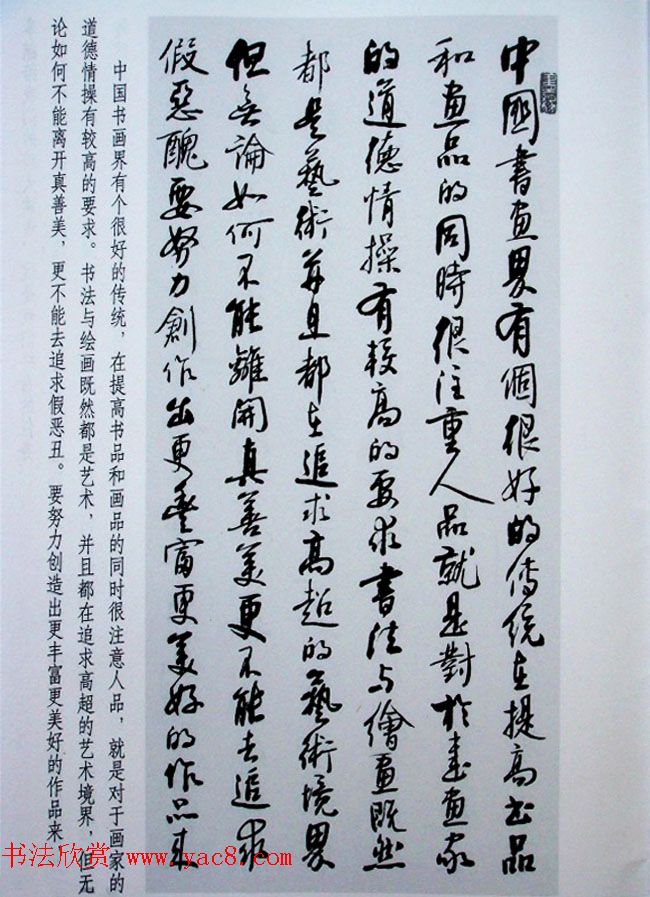 中國書畫界有個很好的傳統在提高書品
和畫品的同時很注重人品就是對於書畫家
的道德情操有較高的要求書法与繪畫既然
都是藝術并且都在追求高超的藝術境界
但無論如何不能離開真善美更不能去追求
假惡醜要努力創作出更豐富更美好的作品来
中国书画界有个很好的传统，在提高书品和画品的同时很注意人品，就是对于画家的
道德情操有较高的要求。书法与绘画既然都是艺术，并且都在追求高超的艺术境界，但无
论如何不能离开真善美，更不能去追求假恶丑。要努力创造出更丰富更美好的作品来
书法欣赏：www.yac8.com